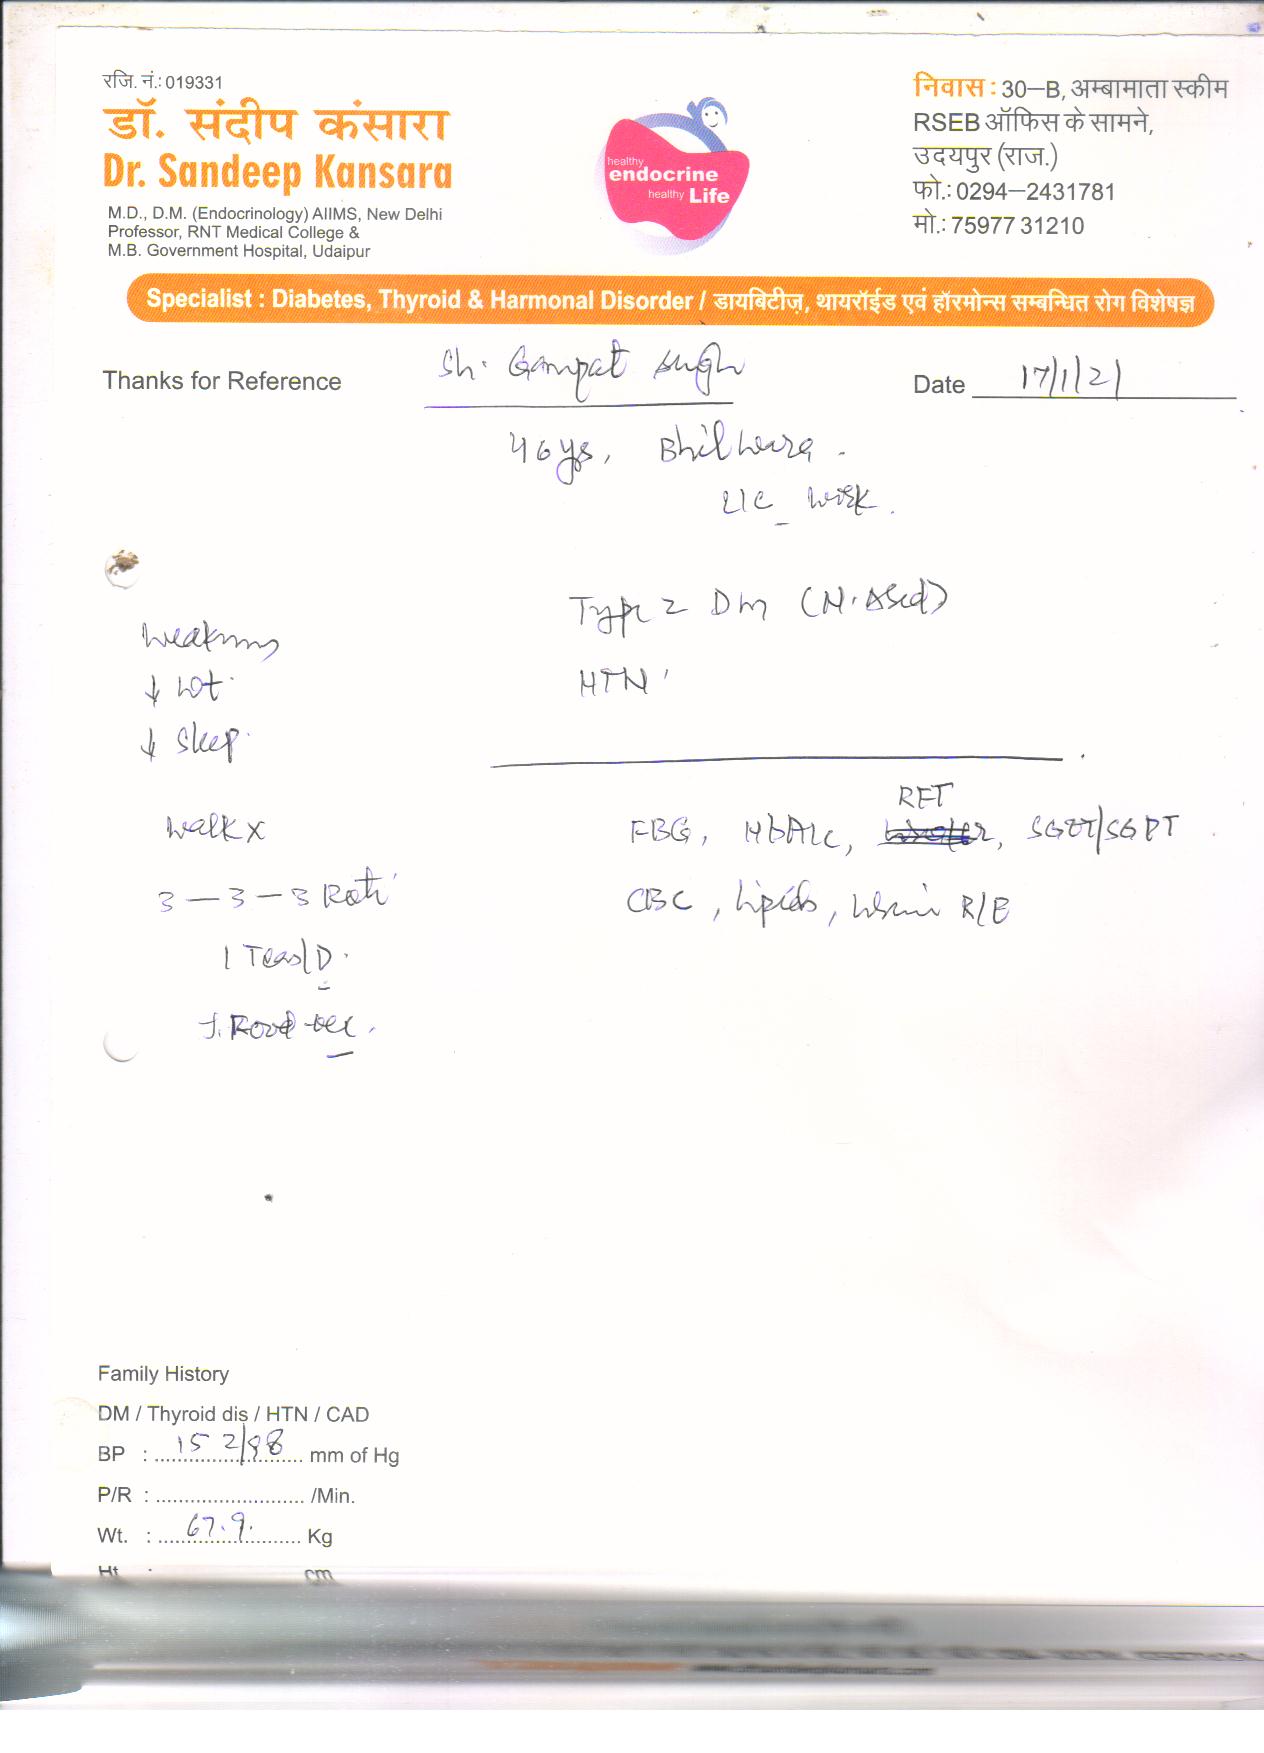 रजि. नं.: 019331
डॉ. संदीप कंसारा
Dr. Sandeep Kansara
M.D., D.M. (Endocrinology) AIIMS, New Delhi
Professor, RNT Medical College &
M.B. Government Hospital, Udaipur
healthy
endocrine
healthy Life
निवास : 30–B, अम्बामाता स्कीम
RSEB ऑफिस के सामने,
उदयपुर (राज.)
फो.: 0294–2431781
मो.: 75977 31210
Specialist : Diabetes, Thyroid & Harmonal Disorder / डायबिटीज़, थायरॉईड एवं हॉरमोन्स सम्बन्धित रोग विशेषज्ञ
Thanks for Reference Sh. Gampat Singh Date 17/1/21
46 ys, Bhilwara.
LIC work.
Type 2 DM
HTN
Weakness
↓ Wt.
↓ Sleep.
Walk x
3 – 3 – 3 Roti
1 Teas/D.
RFT
FBG, HbA1c, SGOT/SGPT
CBC, Lipids, Urine R/E
Family History
DM / Thyroid dis / HTN / CAD
BP : 152/98 mm of Hg
P/R : /Min.
Wt. : 67.9 Kg
Ht : cm